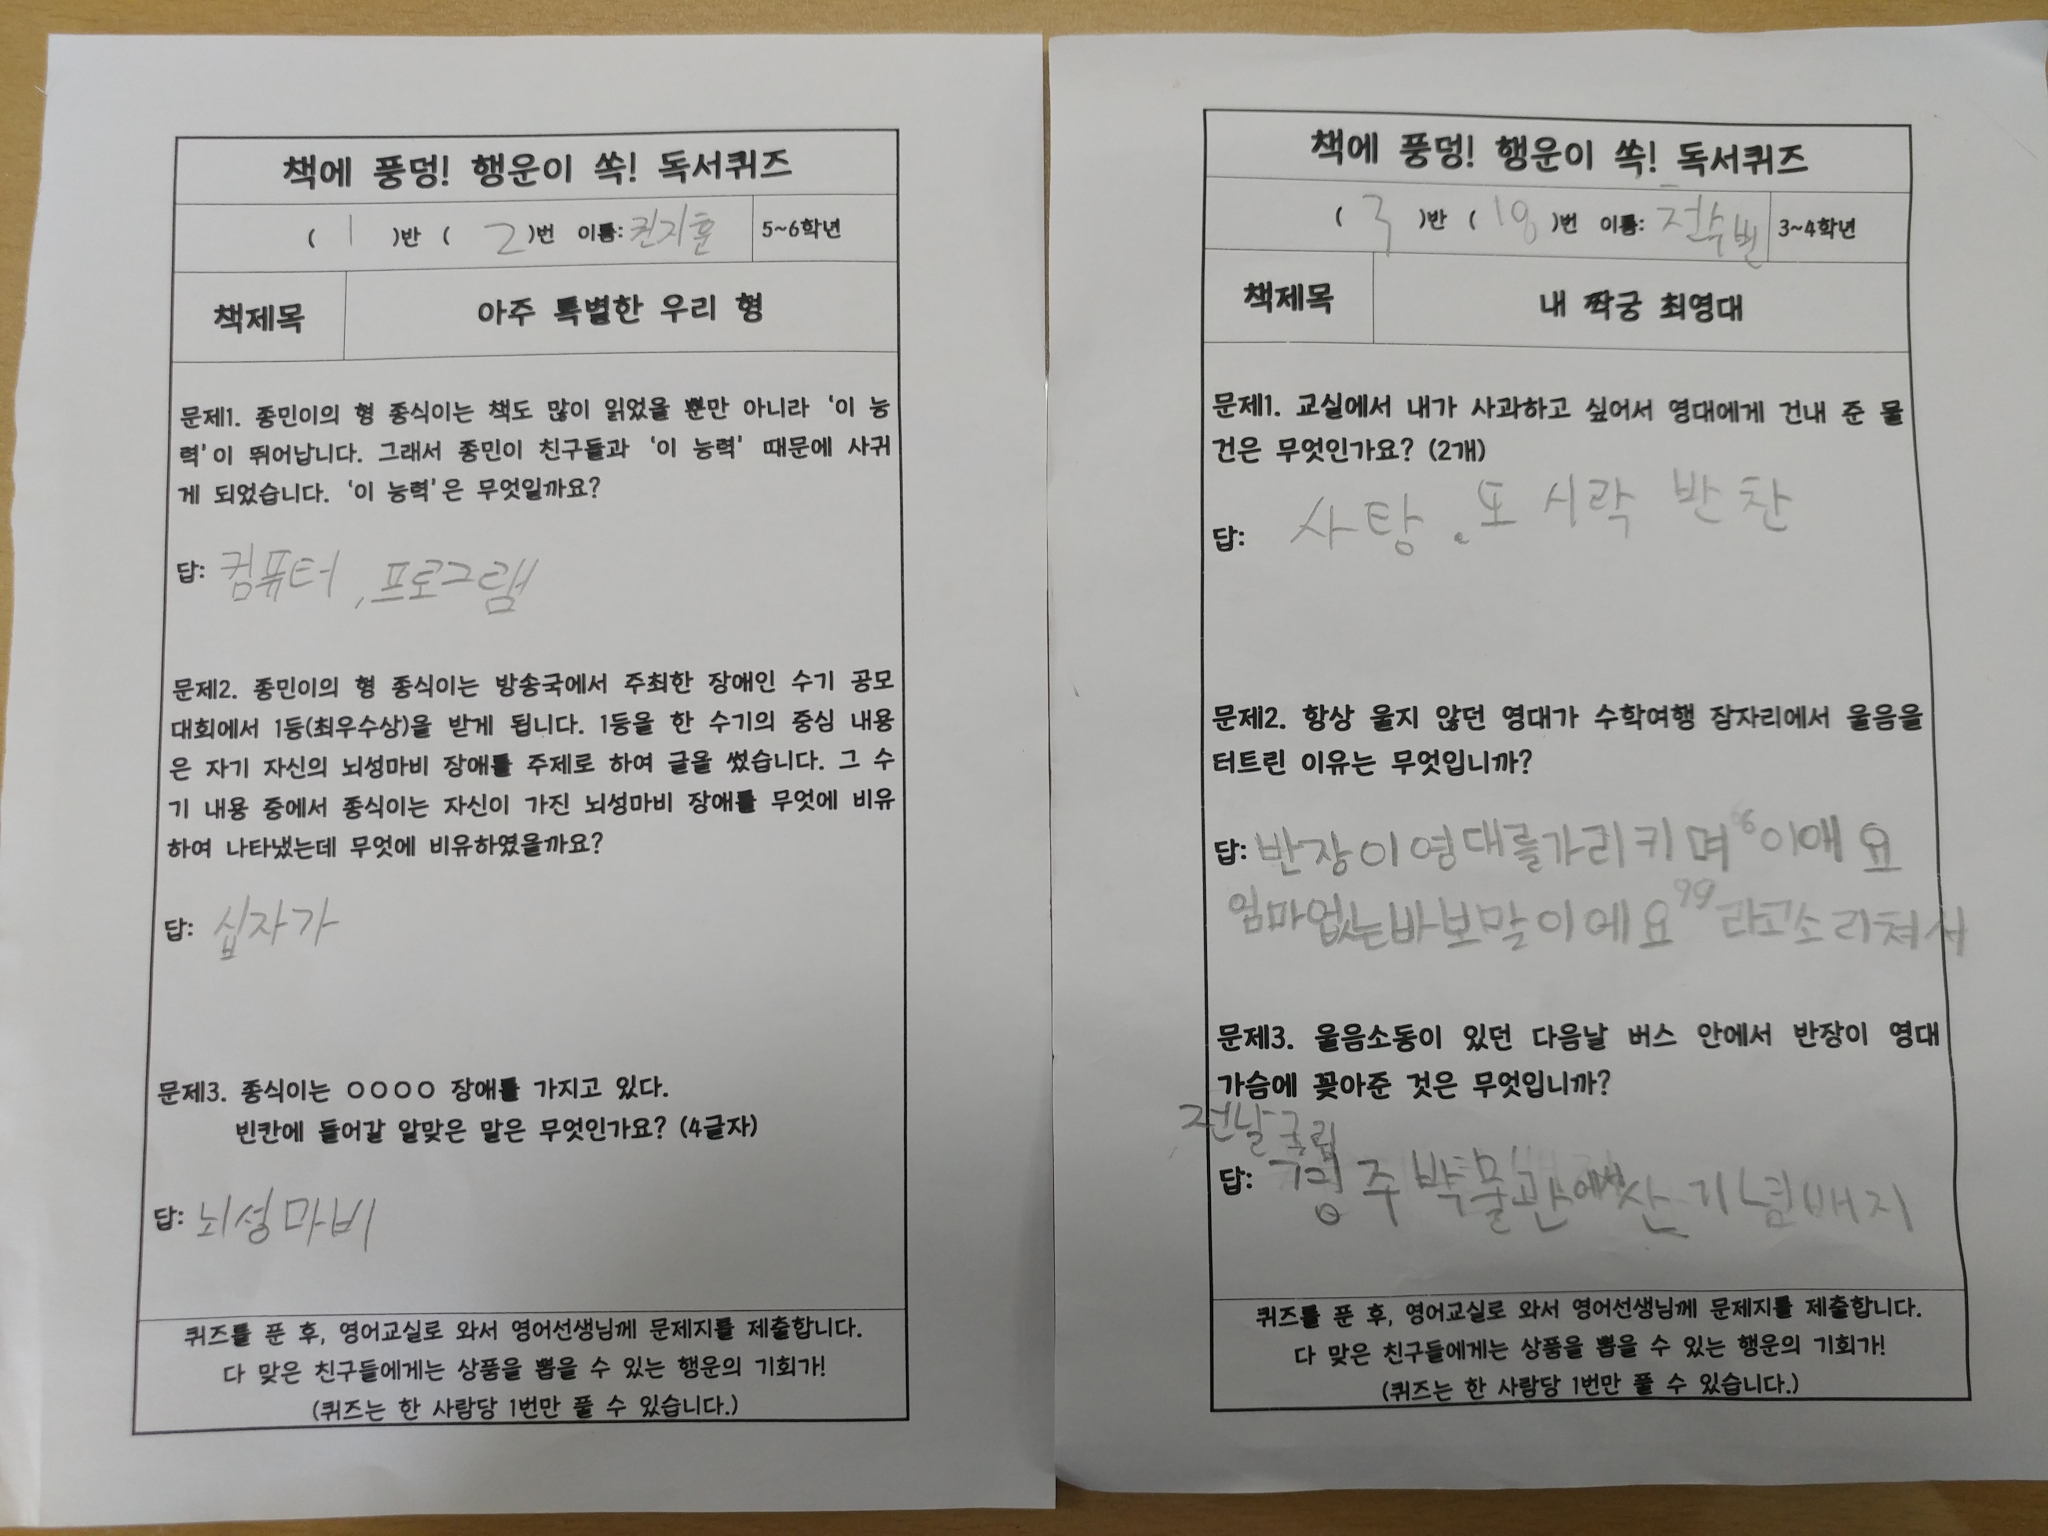 책에 풍덩! 행운이 쏙! 독서퀴즈
( 1 )반 ( 2 )번 이름: 권지훈 5~6학년
책제목 아주 특별한 우리 형
문제1. 종민이의 형 종식이는 책도 많이 읽었을 뿐만 아니라 '이 능
력'이 뛰어납니다. 그래서 종민이 친구들과 '이 능력' 때문에 사귀
게 되었습니다. '이 능력'은 무엇일까요?
답: 컴퓨터, 프로그램
문제2. 종민이의 형 종식이는 방송국에서 주최한 장애인 수기 공모
대회에서 1등(최우수상)을 받게 됩니다. 1등을 한 수기의 중심 내용
은 자기 자신의 뇌성마비 장애를 주제로 하여 글을 썼습니다. 그 수
기 내용 중에서 종식이는 자신이 가진 뇌성마비 장애를 무엇에 비유
하여 나타냈는데 무엇에 비유하였을까요?
답: 십자가
문제3. 종식이는 ㅇㅇㅇㅇ 장애를 가지고 있다.
빈칸에 들어갈 알맞은 말은 무엇인가요? (4글자)
답: 뇌성마비
퀴즈를 푼 후, 영어교실로 와서 영어선생님께 문제지를 제출합니다.
다 맞은 친구들에게는 상품을 뽑을 수 있는 행운의 기회가!
(퀴즈는 한 사람당 1번만 풀 수 있습니다.)
책에 풍덩! 행운이 쏙! 독서퀴즈
( 3 )반 ( 18 )번 이름: 전수빈 3~4학년
책제목 내 짝궁 최영대
문제1. 교실에서 내가 사과하고 싶어서 영대에게 건내 준 물
건은 무엇인가요? (2개)
답: 사탕. 또 시락 반찬
문제2. 항상 울지 않던 영대가 수학여행 잠자리에서 울음을
터트린 이유는 무엇입니까?
답: 반장이 영대를 가리키며 "이애요
엄마없는바보말이에요" 라고소리쳐서
문제3. 울음소동이 있던 다음날 버스 안에서 반장이 영대
가슴에 꽂아준 것은 무엇입니까?
전날 국립
답: 경주 박물관에서 산 기념배지
퀴즈를 푼 후, 영어교실로 와서 영어선생님께 문제지를 제출합니다.
다 맞은 친구들에게는 상품을 뽑을 수 있는 행운의 기회가!
(퀴즈는 한 사람당 1번만 풀 수 있습니다.)